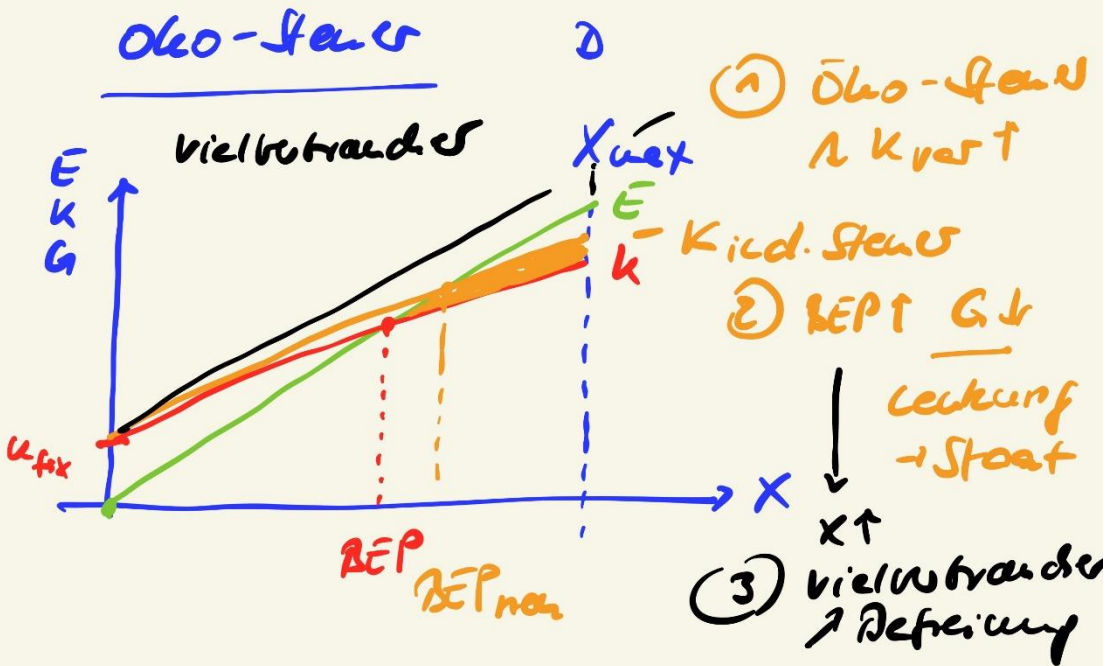 Öko-Steuer
D
Vielverbraucher
E
K
G
Xmax
E
K
Kfix
X
BEP
BEPneu
① Öko-Steuer
Kvar ↑
K incl. Steuer
② BEP ↑ G ↓
→ Staat
X ↑
③ Vielverbraucher
↗ Befreiung